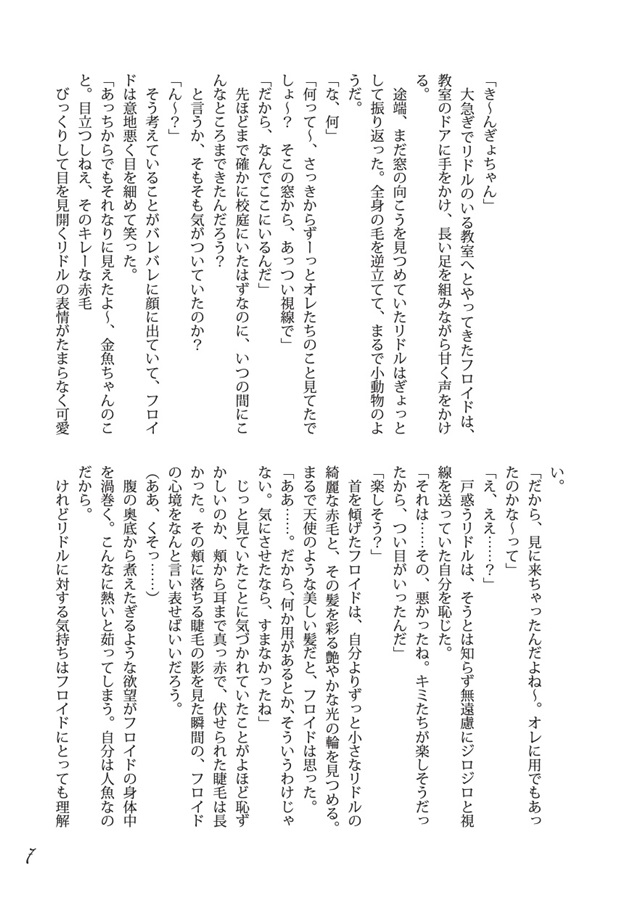 「き～んぎょちゃん」
　大急ぎでリドルのいる教室へとやってきたフロイドは、
教室のドアに手をかけ、長い足を組みながら甘く声をかけ
る。
　途端、まだ窓の向こうを見つめていたリドルはぎょっと
して振り返った。全身の毛を逆立てて、まるで小動物のよ
うだ。
「な、何」
「何って～、さっきからずーっとオレたちのこと見てたで
しょ～？　そこの窓から、あっつい視線で」
「だから、なんでここにいるんだ」
　先ほどまで確かに校庭にいたはずなのに、いつの間にこ
んなところまできたんだろう？
　と言うか、そもそも気がついていたのか？
「ん～？」
　そう考えていることがバレバレに顔に出ていて、フロイ
ドは意地悪く目を細めて笑った。
「あっちからでもそれなりに見えたよ～、金魚ちゃんのこ
と。目立つしねえ、そのキレーな赤毛
　びっくりして目を見開くリドルの表情がたまらなく可愛
い。
「だから、見に来ちゃったんだよね～。オレに用でもあっ
たのかな～って」
「え、ええ……？」
　戸惑うリドルは、そうとは知らず無遠慮にジロジロと視
線を送っていた自分を恥じた。
「それは……その、悪かったね。キミたちが楽しそうだっ
たから、つい目がいったんだ」
「楽しそう？」
　首を傾げたフロイドは、自分よりずっと小さなリドルの
綺麗な赤毛と、その髪を彩る艶やかな光の輪を見つめる。
まるで天使のような美しい髪だと、フロイドは思った。
「ああ……。だから、何か用があるとか、そういうわけじゃ
ない。気にさせたなら、すまなかったね」
　じっと見ていたことに気づかれていたことがよほど恥ず
かしいのか、頬から耳まで真っ赤で、伏せられた睫毛は長
かった。その頬に落ちる睫毛の影を見た瞬間の、フロイド
の心境をなんと言い表せばいいだろう。
（ああ、くそっ……）
　腹の奥底から煮えたぎるような欲望がフロイドの身体中
を渦巻く。こんなに熱いと茹ってしまう。自分は人魚なの
だから。
　けれどリドルに対する気持ちはフロイドにとっても理解
7